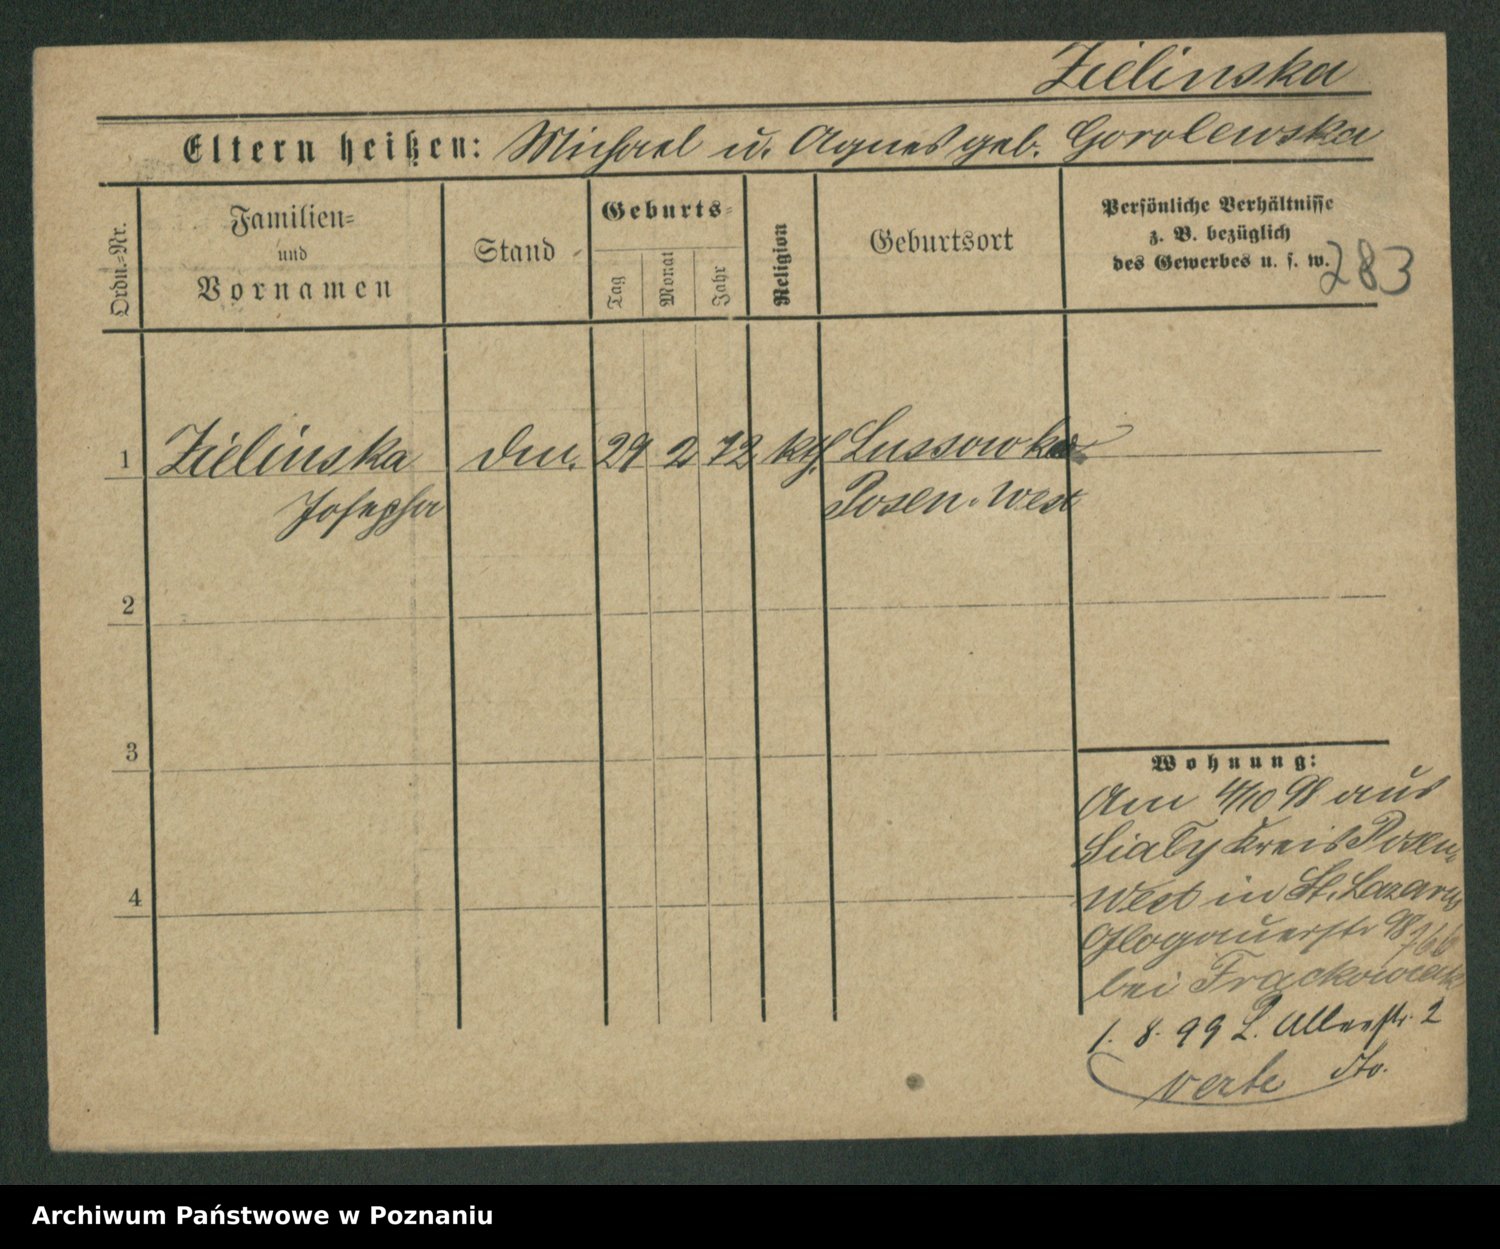 Zielinska
Eltern heißen: Michael u. Agnes geb. Gorolewska
Ordn.-Nr.
Familien-
und
Vornamen
Stand
Geburts-
Tag
Monat
Jahr
Religion
Geburtsort
Persönliche Verhältnisse
z. B. bezüglich
des Gewerbes u. s. w.
283
1 Zielinska dm. 29 2 72 kth Lussowko
Josepha Posen. West
2
3
4
Wohnung:
Am 4/10 98 aus
Kreis Posen
West in St. Lazarus
Glogauerstr 98
bei Frackowiak
1. 8. 99 L. 2
verte